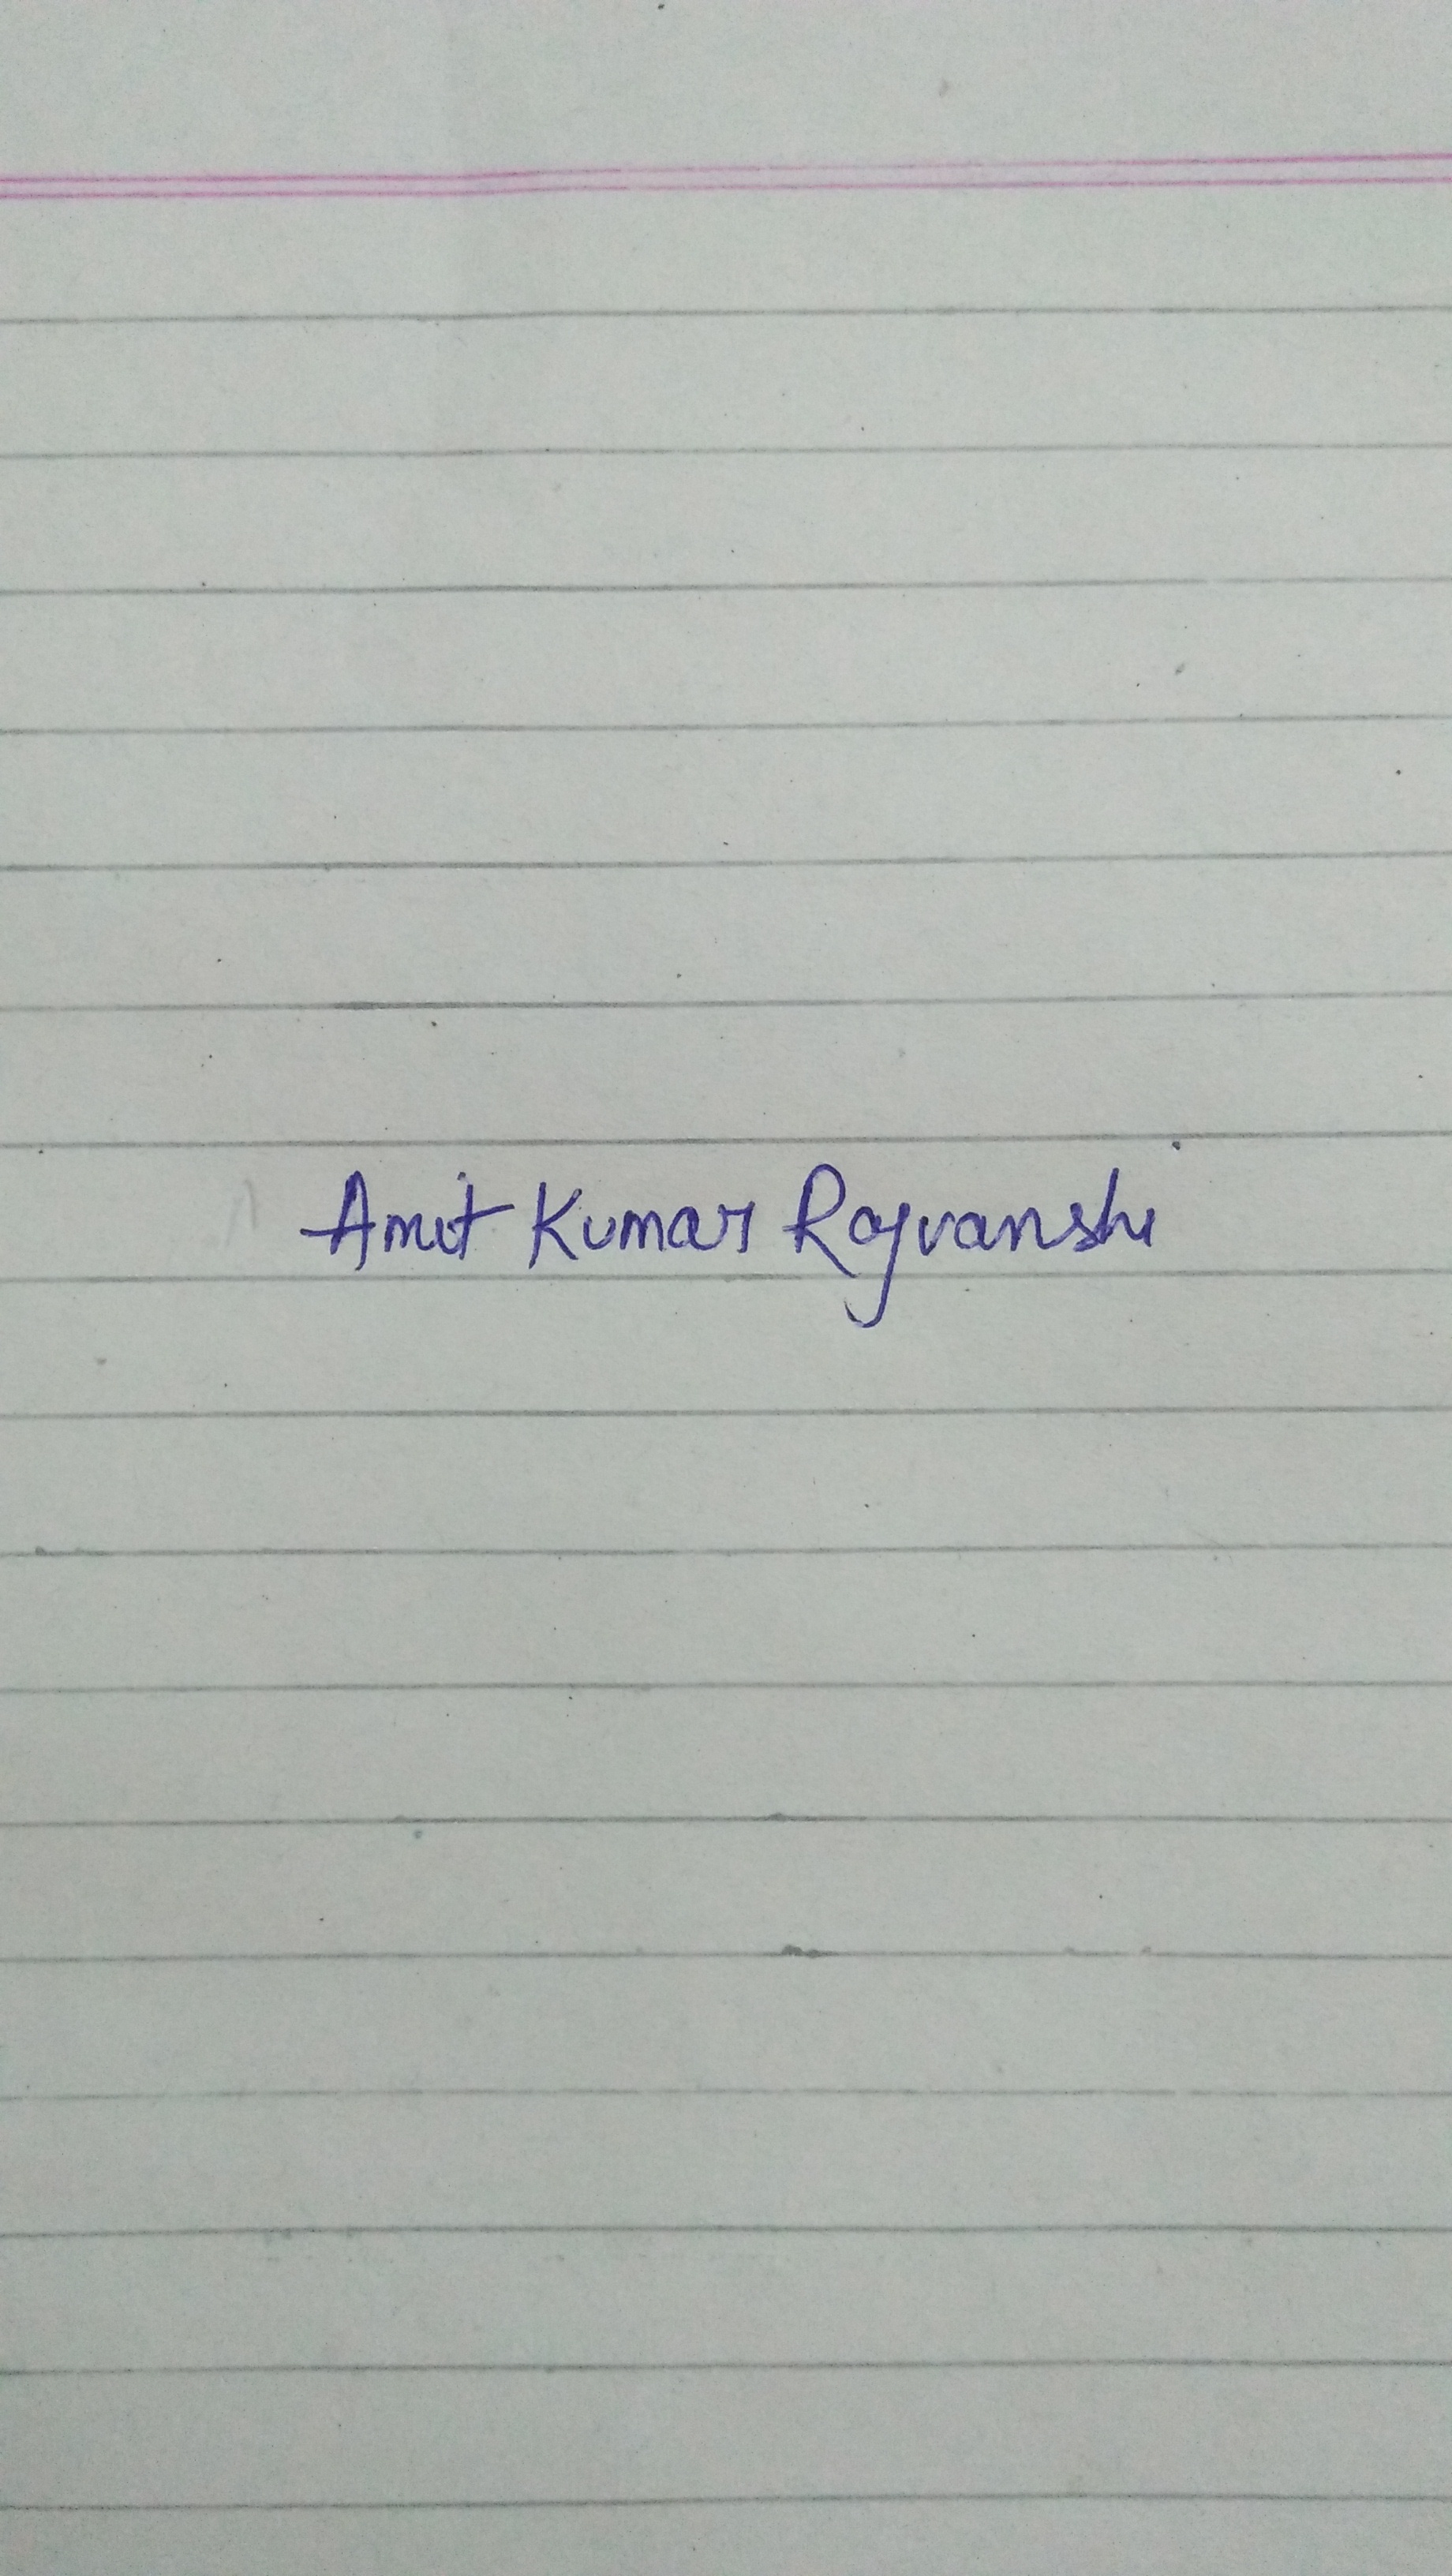 Amit Kumar Rajvanshi